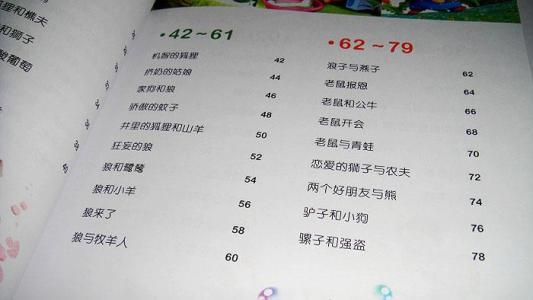 狸和樵夫
和狮子
酸葡萄
•42~61
机智的狐狸 42
挤奶的姑娘 44
家狗和狼 46
骄傲的蚊子 48
井里的狐狸和山羊 50
狂妄的狼 52
狼和鹭鸶 54
狼和小羊 56
狼来了 58
狼与牧羊人 60
•62~79
浪子与燕子 62
老鼠报恩 64
老鼠和公牛 66
老鼠开会 68
老鼠与青蛙 70
恋爱的狮子与农夫 72
两个好朋友与熊 74
驴子和小狗 76
骡子和强盗 78